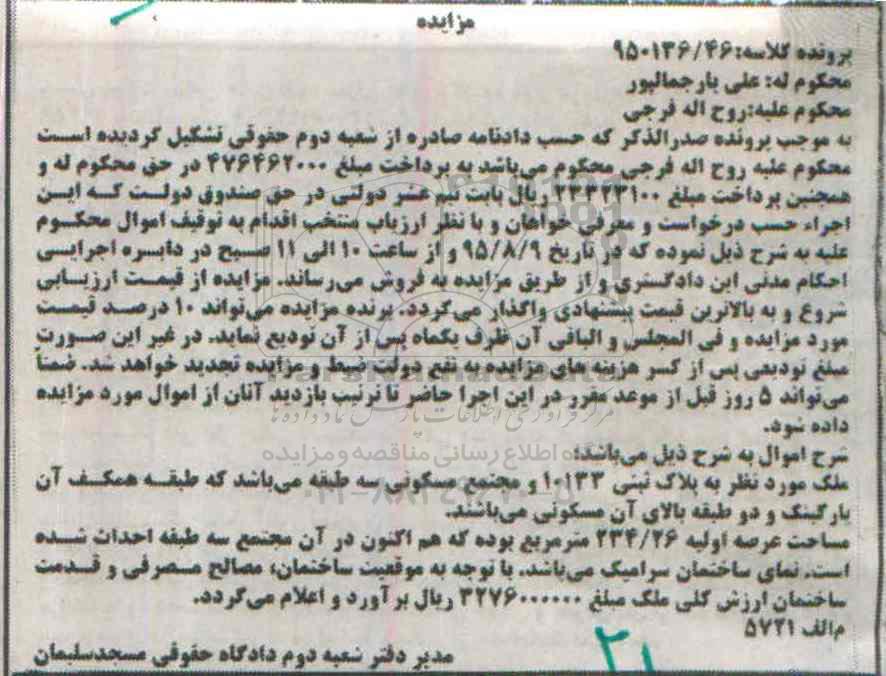 مزایده
پرونده کلاسه: ۹۵۰۱۳۶/۴۶
محکوم له: علی یارجمالپور
محکوم علیه: روح اله فرجی
به موجب پرونده صدرالذکر که حسب دادنامه صادره از شعبه دوم حقوقی تشکیل گردیده است
محکوم علیه روح اله فرجی محکوم می‌باشد به پرداخت مبلغ ۴۷۶۴۶۲۰۰۰ در حق محکوم له و
همچنین پرداخت مبلغ ریال بابت نیم عشر دولتی در حق صندوق دولت که این
اجراء حسب درخواست و معرفی خواهان و با نظر ارزیاب منتخب اقدام به توقیف اموال محکوم
علیه به شرح ذیل نموده که در تاریخ ۹۵/۸/۹ و از ساعت ۱۰ الی ۱۱ صبح در دایره اجرایی
احکام مدنی این دادگستری و از طریق مزایده به فروش می‌رساند. مزایده از قیمت ارزیابی
شروع و به بالاترین قیمت پیشنهادی واگذار می‌گردد. برنده مزایده می‌تواند ۱۰ درصد قیمت
مورد مزایده و فی المجلس و الباقی آن ظرف یکماه پس از آن تودیع نماید. در غیر این صورت
مبلغ تودیعی پس از کسر هزینه های مزایده به نفع دولت ضبط و مزایده تجدید خواهد شد. ضمناً
می‌تواند ۵ روز قبل از موعد مقرر در این اجرا حاضر تا ترتیب بازدید آنان از اموال مورد مزایده
داده شود.
شرح اموال به شرح ذیل می‌باشد:
ملک مورد نظر به پلاک ثبتی ۱۰۱۳۳ و مجتمع مسکونی سه طبقه می‌باشد که طبقه همکف آن
پارکینگ و دو طبقه بالای آن مسکونی می‌باشند.
مساحت عرصه اولیه ۲۳۴/۲۶ مترمربع بوده که هم اکنون در آن مجتمع سه طبقه احداث شده
است. نمای ساختمان سرامیک می‌باشد. با توجه به موقعیت ساختمان، مصالح مصرفی و قدمت
ساختمان ارزش کلی ملک مبلغ ۳۲۷۶۰۰۰۰۰۰ ریال برآورد و اعلام می‌گردد.
م‌الف ۵۷۲۱
مدیر دفتر شعبه دوم دادگاه حقوقی مسجدسلیمان
۲۱
ParsNamadData
مرکز فرآوری اطلاعات پارس نماد داده ها
پایگاه اطلاع رسانی مناقصه و مزایده